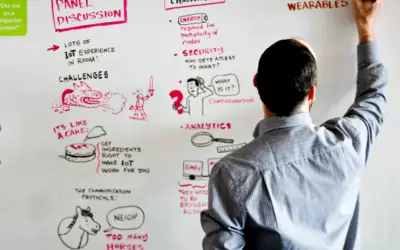 Use me
as a
projector
screen!
PANEL
DISCUSSION
LOTS OF
IoT EXPERIENCE
IN ROOM!
CHALLENGES
IT'S LIKE
A CAKE:
GET
INGREDIENTS
RIGHT TO
MAKE IoT
WORK FOR YOU
THE COMMUNICATION
PROTOCOLS:
NEIGH
TOO MANY
HORSES
ENERGY
required for
multiplicity of
nodes.
SECURITY
WHO GETS ACCESS
TO WHAT?
WHAT
IS IT?
COMPREHENSION
ANALYTICS
THEY NEED
TO BE
BROUGHT
ALONG
WEARABLES